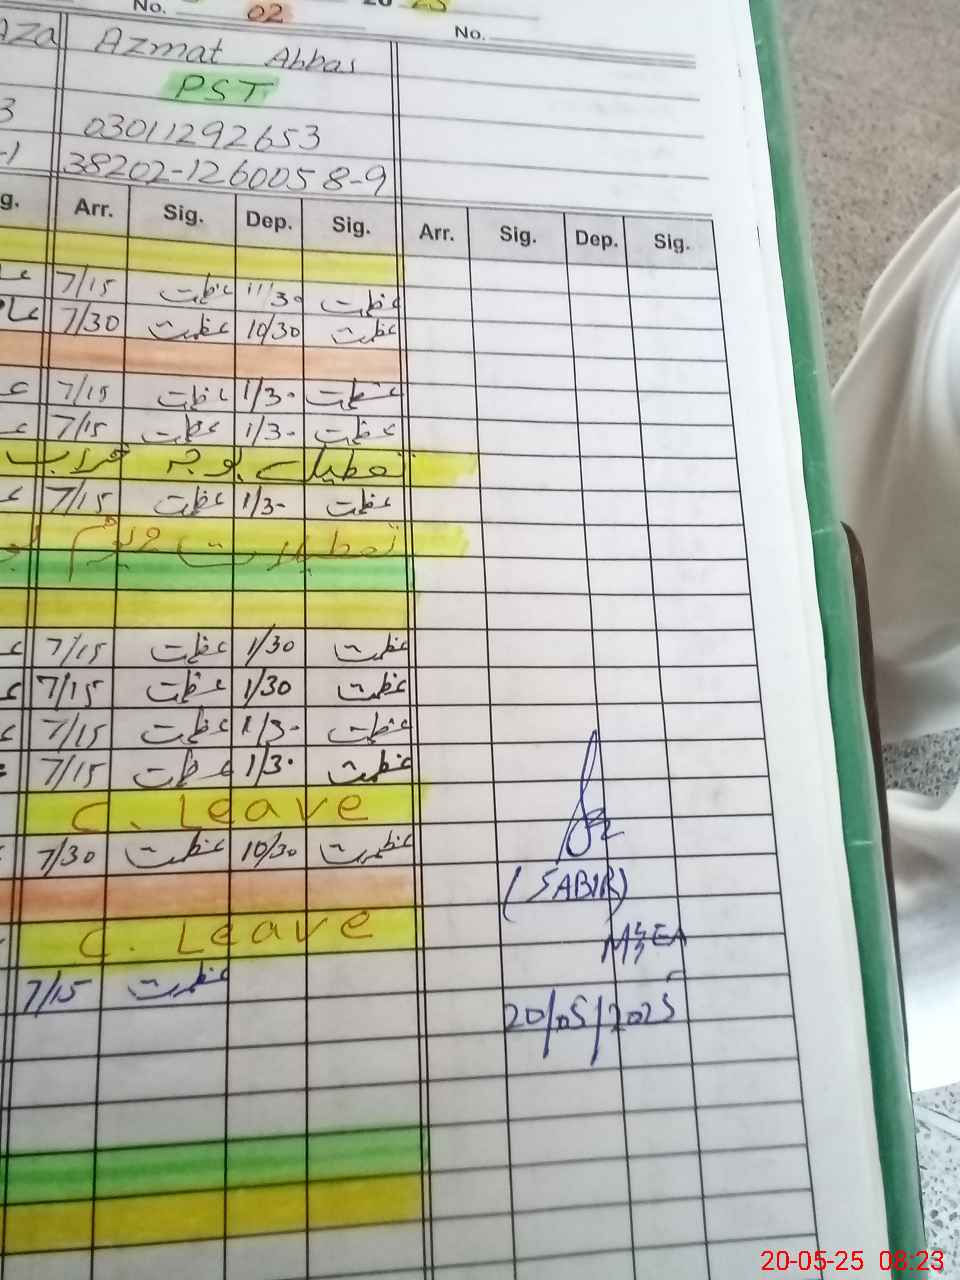 No. 02 20 25
No.
AZA Azmat Abbas
PST
3 03011292653
-1 38202-1260058-9
g. Arr. Sig. Dep. Sig. Arr. Sig. Dep. Sig.
7/15 عظمت 11/30 عظمت
7/30 عظمت 10/30 عظمت
7/15 عظمت 1/30 عظمت
7/15 عظمت 1/30 عظمت
تعطیل بوجہ
7/15 عظمت 1/30 عظمت
تعطیلات
7/15 عظمت 1/30 عظمت
7/15 عظمت 1/30 عظمت
7/15 عظمت 1/30 عظمت
7/15 عظمت 1/30 عظمت
C. Leave
7/30 عظمت 10/30 عظمت
(SABIR)
C. Leave
MEA
7/15 عظمت
20/05/2025
20-05-25 08:23